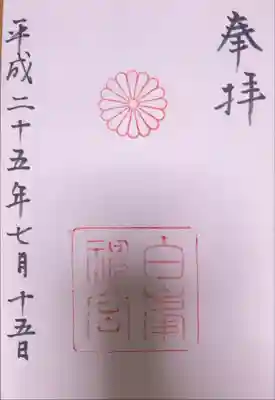 奉拝
白峯
神宮
平成二十五年七月十五日